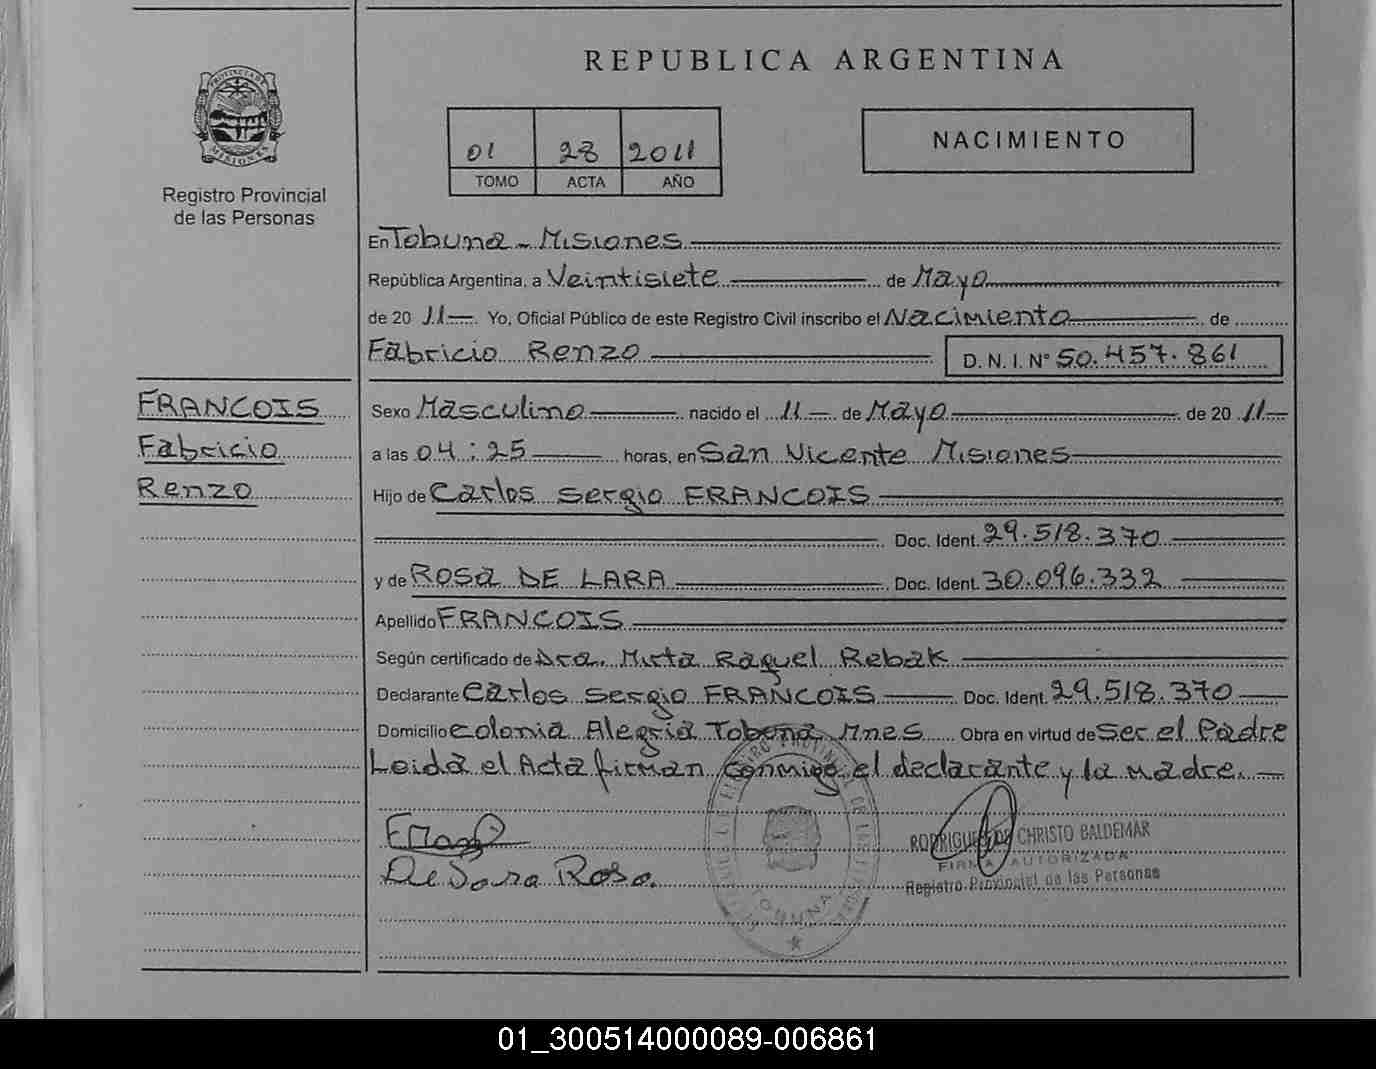 PROVINCIA DE
MISIONES
Registro Provincial
de las Personas
REPUBLICA ARGENTINA
01 28 2011
TOMO ACTA AÑO
NACIMIENTO
En Tobuna - Misiones
República Argentina, a Veintisiete de Mayo
de 20 11 Yo, Oficial Público de este Registro Civil inscribo el Nacimiento de
Fabricio Renzo D. N. I. Nº 50.457.861
FRANCOIS
Fabricio
Renzo
Sexo Masculino nacido el 11 de Mayo de 20 11
a las 04:25 horas, en San Vicente Misiones
Hijo de Carlos Sergio FRANCOIS
Doc. Ident. 29.518.370
y de ROSA DE LARA Doc. Ident. 30.096.332
Apellido FRANCOIS
Según certificado de Dra. Mirta Raquel Rebak
Declarante Carlos Sergio FRANCOIS Doc. Ident. 29.518.370
Domicilio Colonia Alegria Tobuna Mnes Obra en virtud de Ser el Padre
Leida el Acta firman conmigo el declarante y la madre.
De Lara Rosa.
RODRIGUEZ DE CHRISTO BALDEMAR
FIRMA AUTORIZADA
Registro Provincial de las Personas
TOBUNA
01_300514000089-006861